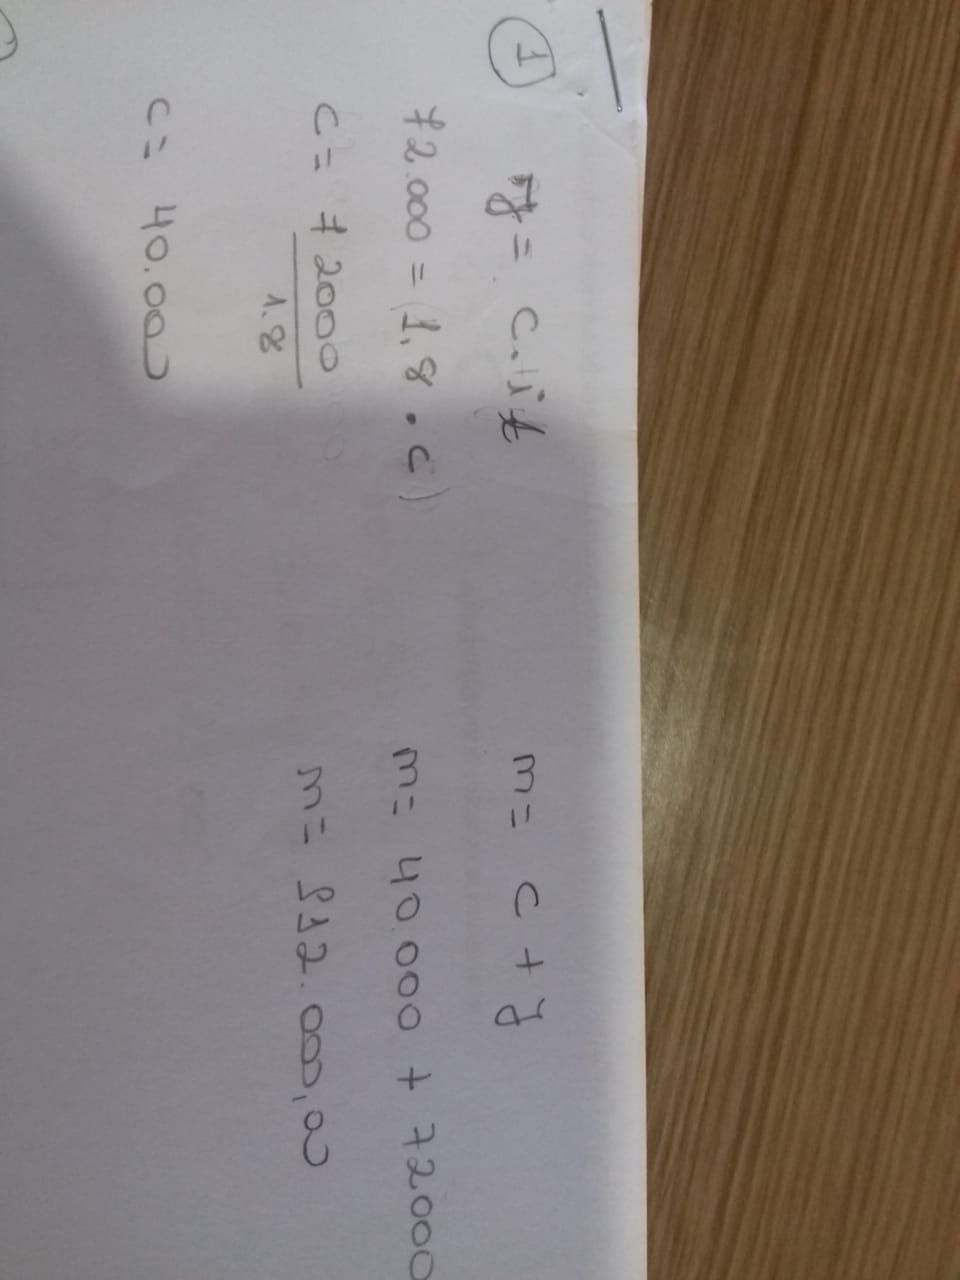 1
J = C.i.t
72.000 = (1.8 . C)
C = 72000
1.8
C = 40.000
m = C + J
m = 40.000 + 72000
m = 112.000,00